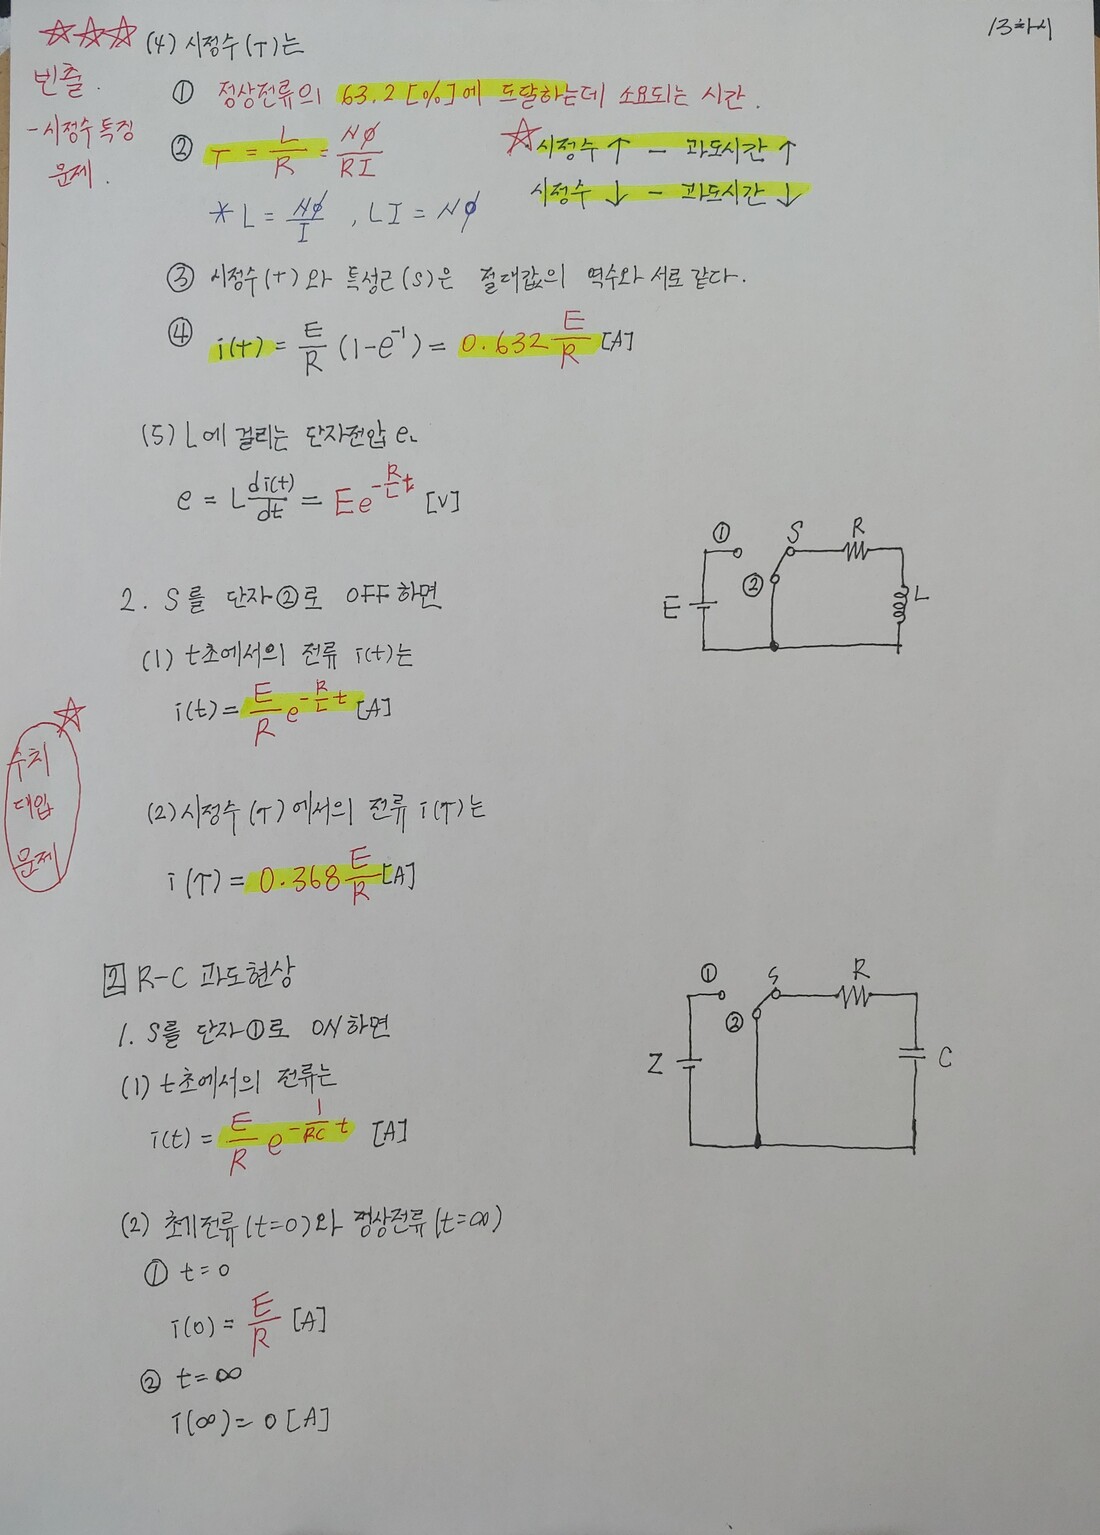 13차시
☆☆☆ (4) 시정수(τ)는
빈출.
- 시정수 특징
문제.
① 정상전류의 63.2[%]에 도달하는데 소요되는 시간.
② τ = L/R = Nφ/RI
☆시정수↑ - 과도시간↑
시정수↓ - 과도시간↓
* L = Nφ/I , LI = Nφ
③ 시정수(τ)와 특성근(s)은 절대값의 역수와 서로 같다.
④ i(τ) = E/R (1-e^-1) = 0.632 E/R [A]
(5) L에 걸리는 단자전압 eL
e = L di(t)/dt = Ee^(-R/L t) [V]
① S R
② E L
2. S를 단자②로 OFF하면
(1) t초에서의 전류 i(t)는
i(t) = E/R e^(-R/L t) [A]
☆
수치
대입
문제
(2) 시정수(τ)에서의 전류 i(τ)는
i(τ) = 0.368 E/R [A]
2 R-C 과도현상
① S R
② Z C
1. S를 단자①로 ON하면
(1) t초에서의 전류는
i(t) = E/R e^(-1/RC t) [A]
(2) 초기전류(t=0)와 정상전류(t=∞)
① t=0
i(0) = E/R [A]
② t=∞
i(∞) = 0 [A]